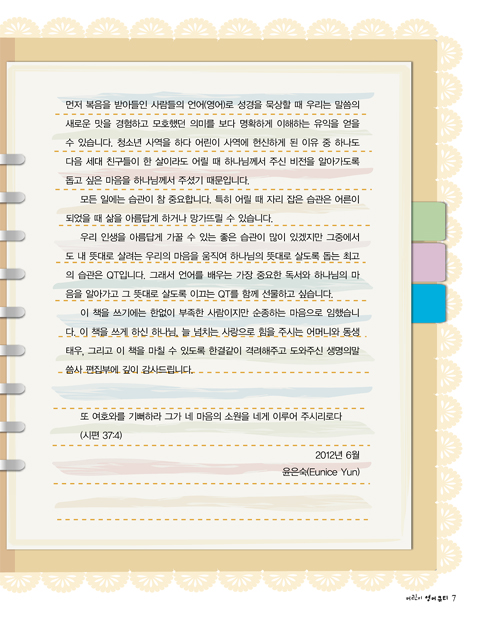 먼저 복음을 받아들인 사람들의 언어(영어)로 성경을 묵상할 때 우리는 말씀의
새로운 맛을 경험하고 모호했던 의미를 보다 명확하게 이해하는 유익을 얻을
수 있습니다. 청소년 사역을 하다 어린이 사역에 헌신하게 된 이유 중 하나도
다음 세대 친구들이 한 살이라도 어릴 때 하나님께서 주신 비전을 알아가도록
돕고 싶은 마음을 하나님께서 주셨기 때문입니다.
모든 일에는 습관이 참 중요합니다. 특히 어릴 때 자리 잡은 습관은 어른이
되었을 때 삶을 아름답게 하거나 망가뜨릴 수 있습니다.
우리 인생을 아름답게 가꿀 수 있는 좋은 습관이 많이 있겠지만 그중에서
도 내 뜻대로 살려는 우리의 마음을 움직여 하나님의 뜻대로 살도록 돕는 최고
의 습관은 QT입니다. 그래서 언어를 배우는 가장 중요한 독서와 하나님의 마
음을 알아가고 그 뜻대로 살도록 이끄는 QT를 함께 선물하고 싶습니다.
이 책을 쓰기에는 한없이 부족한 사람이지만 순종하는 마음으로 임했습니
다. 이 책을 쓰게 하신 하나님, 늘 넘치는 사랑으로 힘을 주시는 어머니와 동생
태우, 그리고 이 책을 마칠 수 있도록 한결같이 격려해주고 도와주신 생명의말
씀사 편집부에 깊이 감사드립니다.
또 여호와를 기뻐하라 그가 네 마음의 소원을 네게 이루어 주시리로다
(시편 37:4)
2012년 6월
윤은숙(Eunice Yun)
어린이 영어 큐티 7